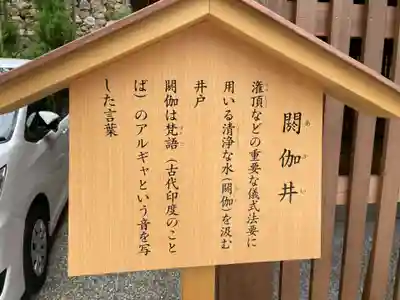 閼伽井
灌頂などの重要な儀式法要に
用いる清浄な水(閼伽)を汲む
井戸
閼伽は梵語(古代印度のこと
ば)のアルギャという音を写
した言葉